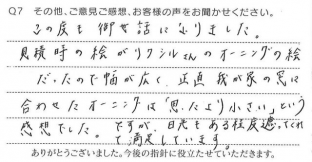 Q7 その他、ご意見ご感想、お客様の声をお聞かせください。
この度も御世話になりました。
見積時の絵がリクシルさんのオーニングの絵
だったので幅が広く、正直我が家の窓に
合わせたオーニングは「思ったより小さい」という
感想でした。ですが、日光もある程度遮ってくれ
て満足しています。
ありがとうございました。今後の指針に役立たせていただきます。